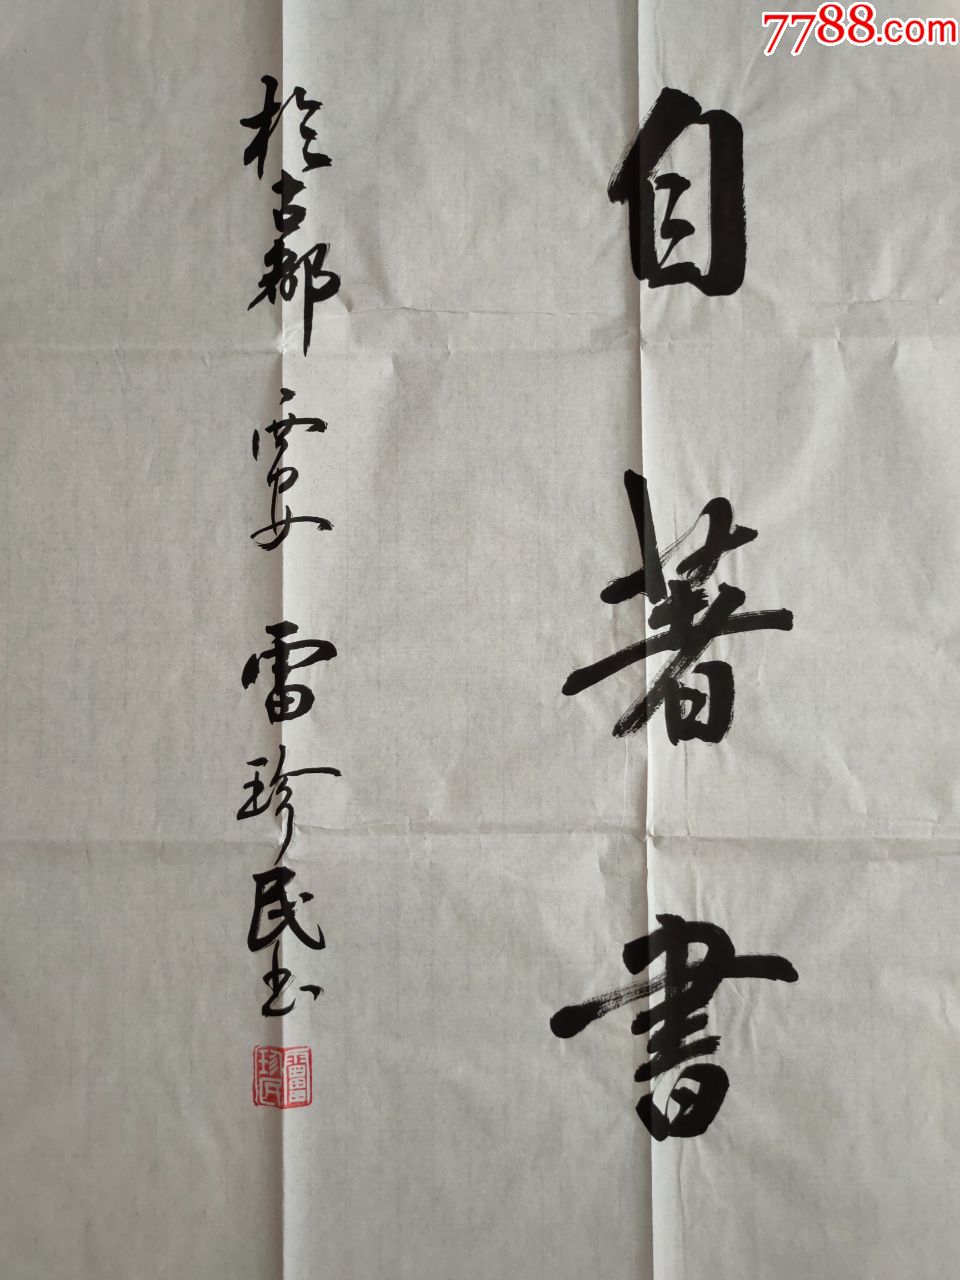 7788.com
自著書
於古都西安雷珍民书
雷珍民